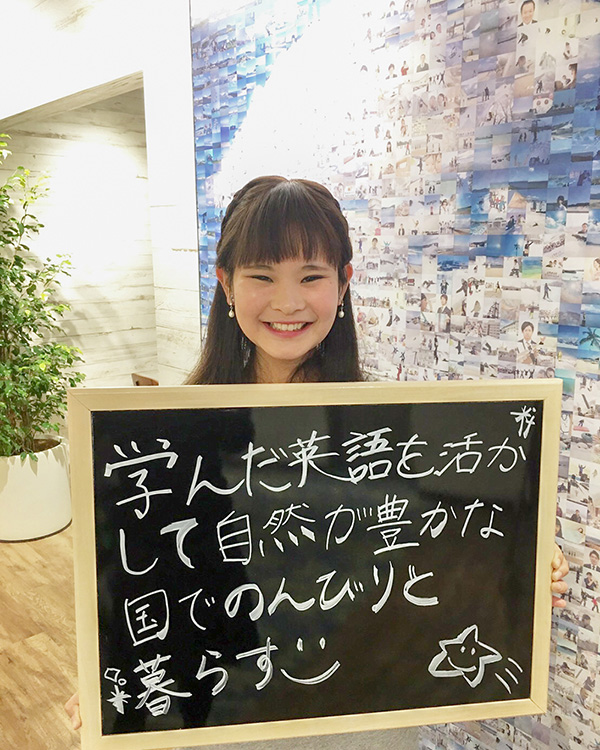 学んだ英語を活か
して自然が豊かな
国でのんびりと
暮らす